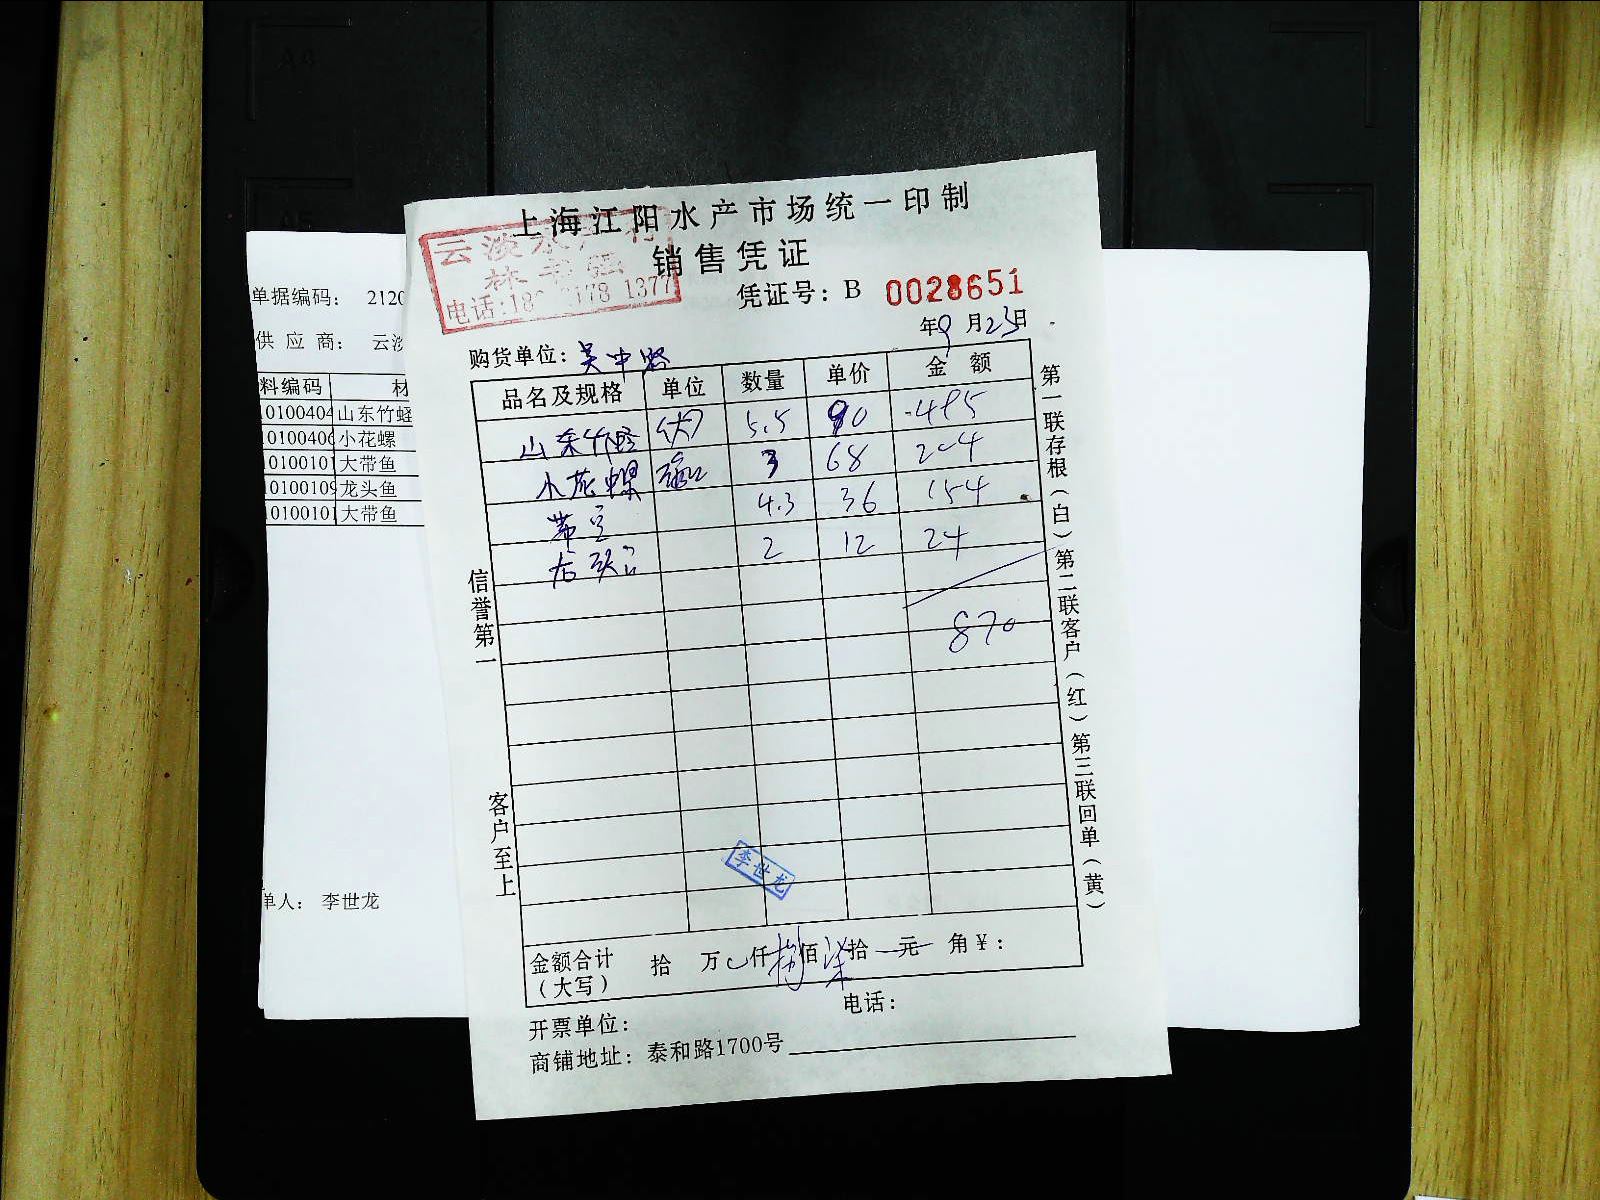 上海江阳水产市场统一印制
销售凭证
云淡水
电话:18 178 1377
凭证号：B 0028651
年9月23日
购货单位：吴中路
品名及规格 单位 数量 单价 金额
山东竹蛏 (大) 5.5 90 495
小花螺 3 68 204
带鱼 4.3 36 154
龙头鱼 2 12 24
870
信誉第一
客户至上
第一联存根（白）第二联客户（红）第三联回单（黄）
李世龙
金额合计（大写） 拾 万 仟捌佰柒拾 元 角￥：
电话：
开票单位：
商铺地址：泰和路1700号
单据编码： 2120
供应商： 云淡
料编码 材
10100404 山东竹蛏
10100406 小花螺
1010010 大带鱼
10100109 龙头鱼
1010010 大带鱼
单人： 李世龙